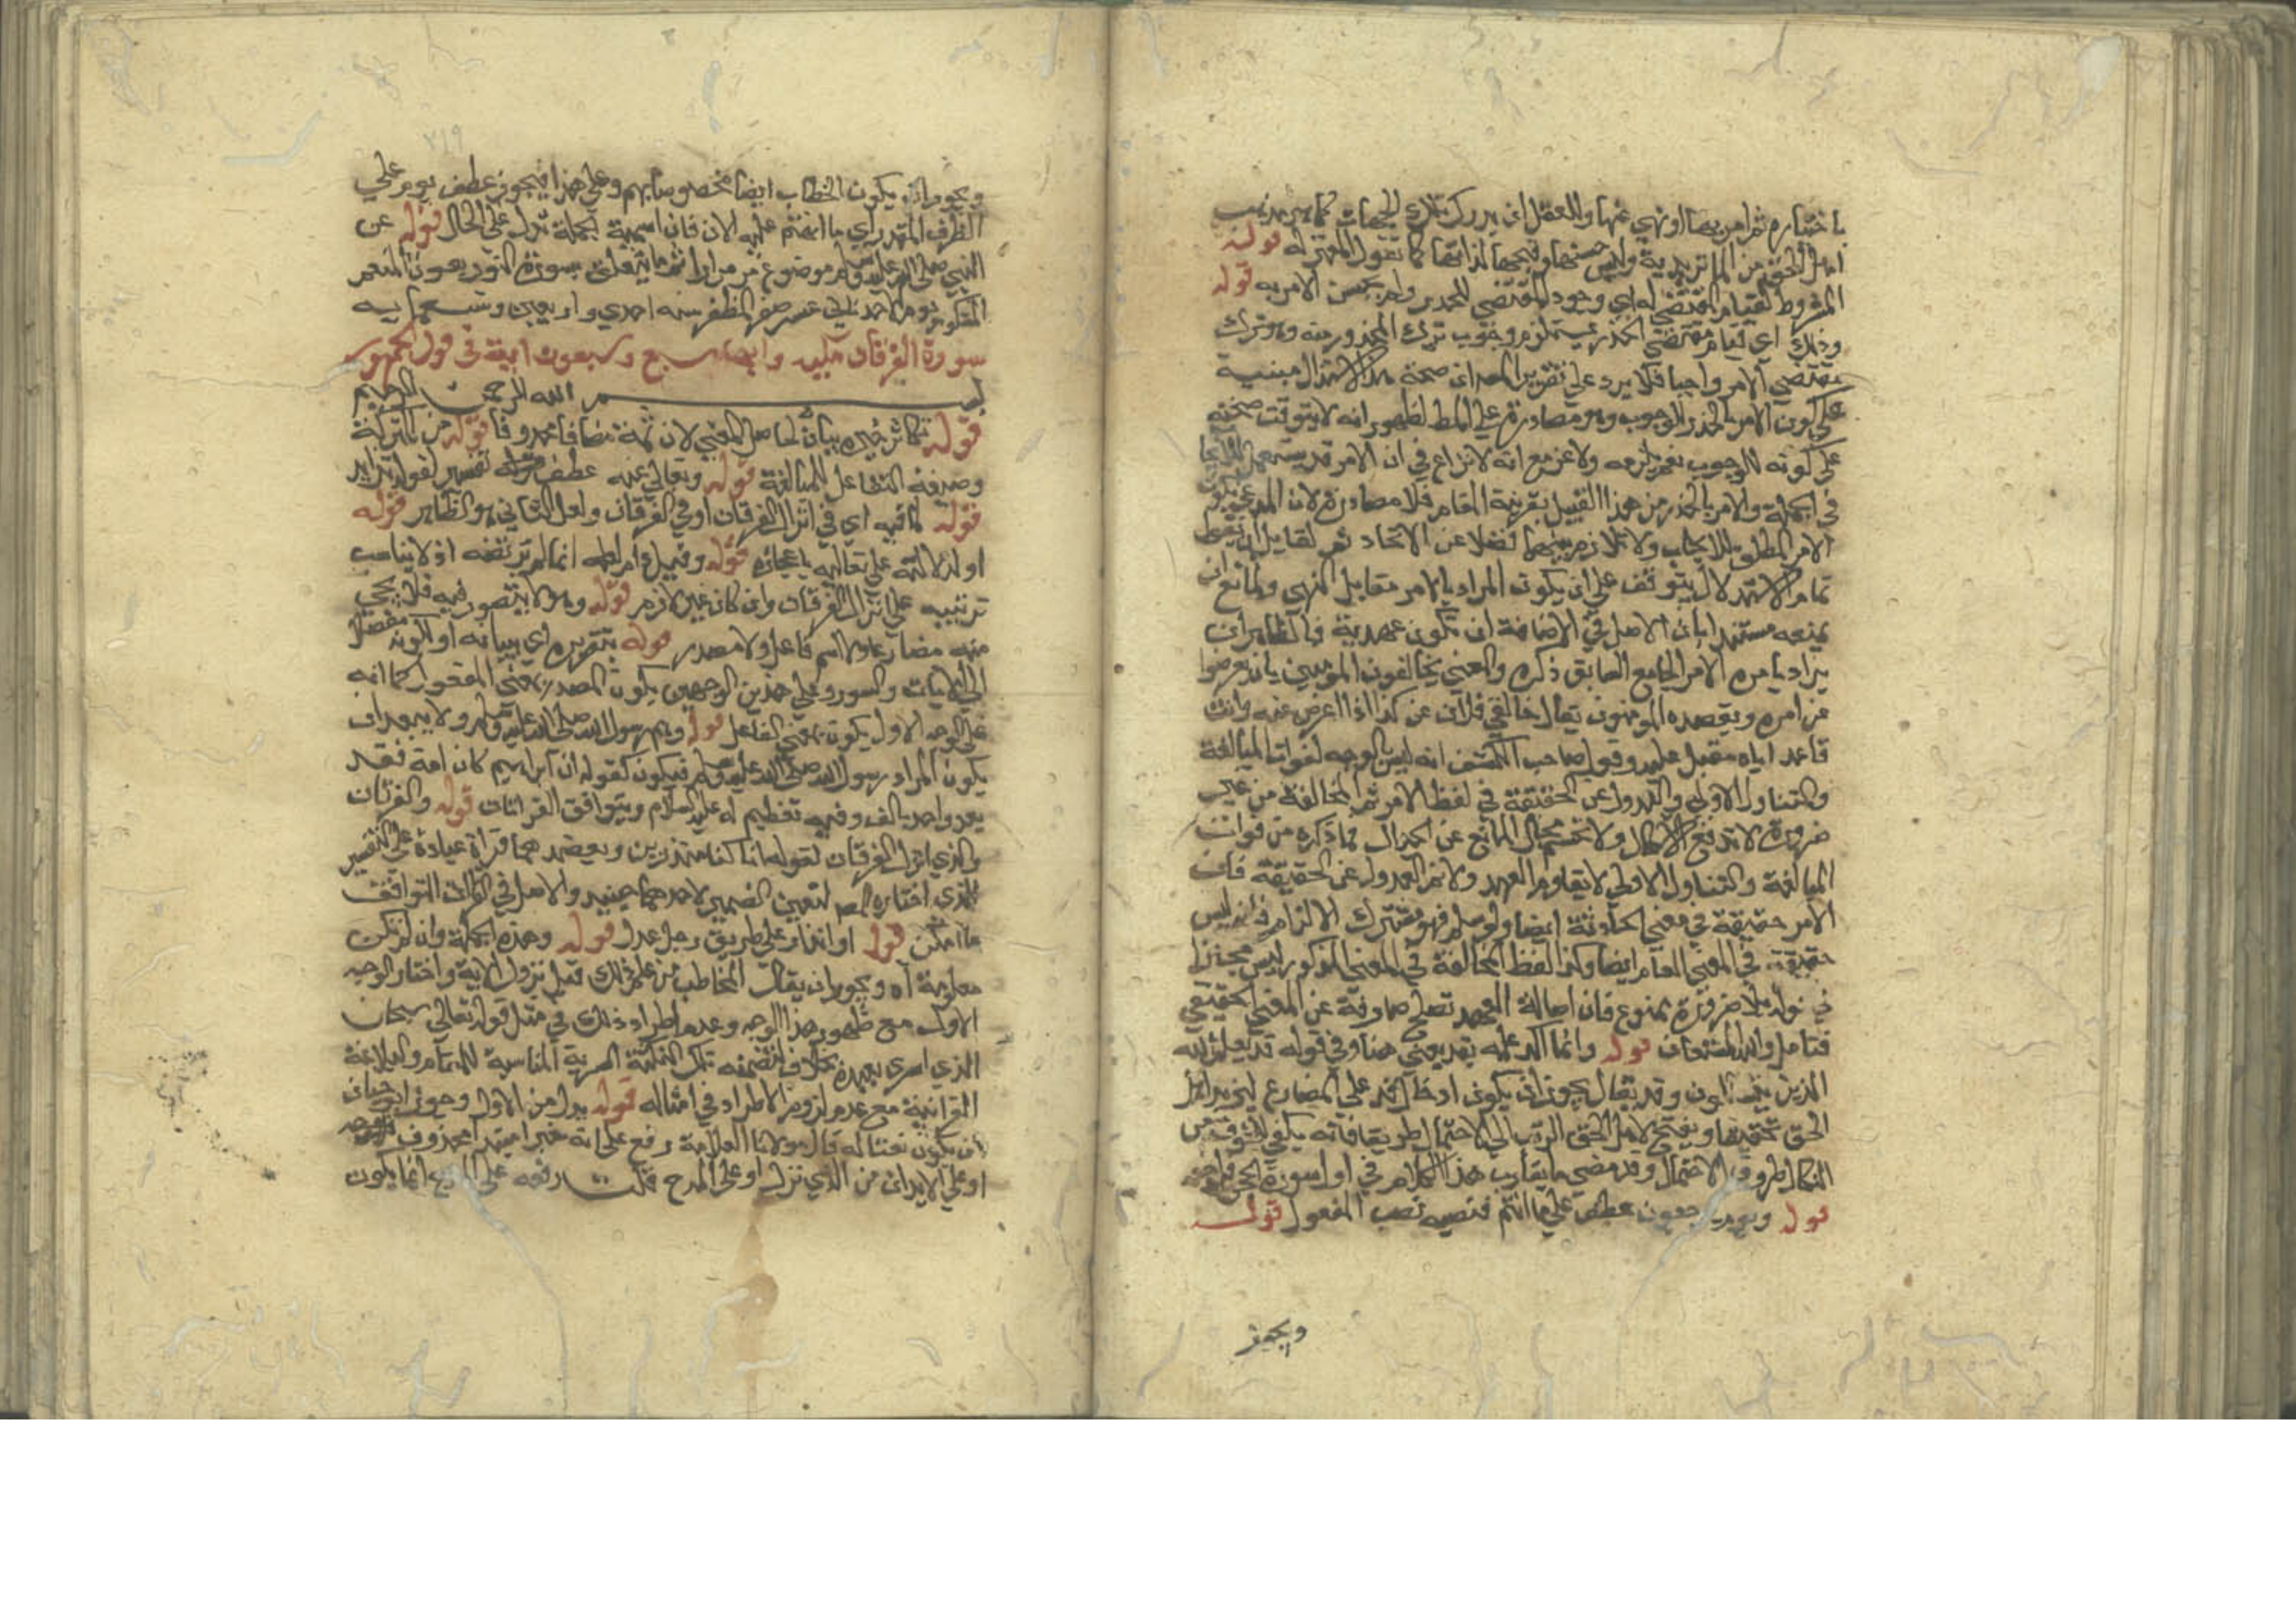 باختياره ثم امر بها او نهي عنها وللعقل ان يدرك تلك الجهات كما هو مذهب
اهل الحق من الماتريدية وليس حسنها وقبحها لذاتها كما تقول المعتزلة قوله
المشروط لقيام المقتضي له اي وجود المقتضي للحذر ولم يحسن الامر به قوله
وذلك اي قيام مقتضي الحذر يستلزم وجوب ترك المحذور منه وهو ترك
مقتضي الامر واجبا فلا يرد على تقرير المص ان صحة هذا الاستدلال مبنية
على كون الامر بالحذر للوجوب وهو مصادرة على المط لظهور انه لا يتوقف صحته
على كونه للوجوب مع انه لا نزاع في ان الامر قد يستعمل للايجاب
في الجملة والامر بالحذر من هذا القبيل بقرينة المقام فلا مصادرة لان المدعى كون
الامر المطلق للايجاب ولا تلازم بينهما فضلا عن الاتحاد ثم لقايل ان يقول
تمام الاستدلال يتوقف على ان يكون المراد بالامر مقابل النهي وللمانع ان
يمنعه مستندا بان الاصل في الاضافة ان تكون عهدية فالظاهر ان
يراد بامره الامر الجامع السابق ذكره والمعني يخالفون المومنين بان يعرضوا
عن امره ويقصده المومنون يقال خالفني فلان عن كذا اذا اعرض عنه وانت
قاصد اياه مقبل عليه وقول صاحب الكشف انه ليس الوجه لفوات المبالغة
والتناول الاولي والعدول عن الحقيقة في لفظ الامر ثم المخالفة من غير
ضرورة لا تدفع الاحتمال ولا تحسم مجال المانع عن الجدال فما ذكره من فوات
المبالغة والتناول الاولي لا يقاوم العهد ولا ثم العدول عن الحقيقة فان
الامر حقيقة في معني الحادثة ايضا ولو سلم فهو مشترك الالزام فانه ليس
حقيقة في المعني العام ايضا وكذا لفظ المخالفة في المعني المذكور ليس مجازا
قوله بلا ضرورة ممنوع فان اصالة العهد تصلح صارفة عن المعني الحقيقي
فتامل والله المستعان قوله وانما اكد علمه بقد يعني هنا وفي قوله قد يعلم الله
الذين يتسللون وقد يقال يجوز ان يكون ادخال قد على المضارع ليزيد اهل
الحق تحقيقا ويفتح لاهل الحق الريب الى الاحتمال طريقا فانه يكفي للخوف من
النكال طروق الاحتمال وقد مضى ما يقارب هذا الكلام في اول سورة الحجر
قوله ويوم يرجعون عطف على ما انتم فنصبه نصب المفعول قوله
ويجوز
٢١٩
ويجوز ان يكون الخطاب ايضا مخصوصا بهم وعلى هذا فيجوز عطف يوم على
الظرف المقدر اي ما انتم عليه الان فان اسمية الجملة تدل على الحال قوله عن
النبي صلى الله عليه وسلم موضوع من مرارا تم ما يتعلق بسورة النور بعون المنعم
الشكور يوم الاحد ثاني عشر صفر المظفر سنه احدي واربعين وتسعمايه
سورة الفرقان مكيه وايها سبع وسبعون اية في قول الجمهور
بسم الله الرحمن الرحيم
قوله تكاثر خيره بيان لحاصل المعني لان ثمة مضافا محذوفا قوله من البركة
وصيغة التفاعل للمبالغة قوله وتعالى عنه عطف تفسير لقوله تزايد
قوله لما فيه اي في انزال الفرقان او في الفرقان ولعل الثاني هو الظاهر قوله
او لدلالته على تعاليه باعجازه قوله وقيل دام انما لم يرتضه اذ لا يناسب
ترتيبه على انزال الفرقان وان كان غير لازم قوله وهو لا يتصور فيه فلا يجي
منه مضارع ولا اسم فاعل ولا مصدر قوله بتقريره اي بيانه او لكونه مفصلا
الى الايات والسور وعلى هذين الوجهين يكون المصدر بمعني المفعول كما انه
على الوجه الاول يكون بمعني الفاعل قوله وهم رسول الله صلى الله عليه وسلم ولا يبعد ان
يكون المراد رسول الله صلى الله عليه وسلم فيكون كقوله ان ابراهيم كان امة فقد
يعد واحد بالف وفيه تعظيم له عليه السلام ويتوافق القراءتان قوله والفرقان
والذي انزل الفرقان لقوله انا كنا منذرين ويعضدهما قراة عباده على التفسير
الذي اختاره المص لتعين الضمير لاحدهما حينيذ والاصل في القراات التوافق
ما امكن قوله او انذار على طريق رجل عدل قوله وهذه الجملة وان لم تكن
معلومة اه ويجوز ان يقال المخاطب من علم ذلك قبل نزول الاية واختار الوجه
الاول مع ظهور هذا الوجه وعدم اطراد ذلك في مثل قوله تعالى سبحان
الذي اسري بعبده بخلاف تضمنه تلك النكتة السرية المناسبة للمقام والبلاغة
القرانية مع عدم لزوم الاطراد في امثاله قوله بدل من الاول وجوز ابو حيان
ان يكون نعتا له قال مولانا العلامة رفع على انه خبر مبتدا محذوف
او على الابدال من الذي نزل او على المدح قلت رفعه على المدح انما يكون